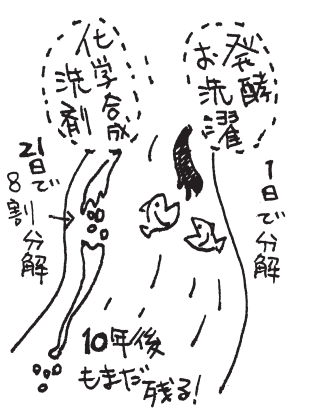 化学合成
洗剤
発酵
お洗濯
21日で
8割分解
1日で分解
10年後
もまだ残る!